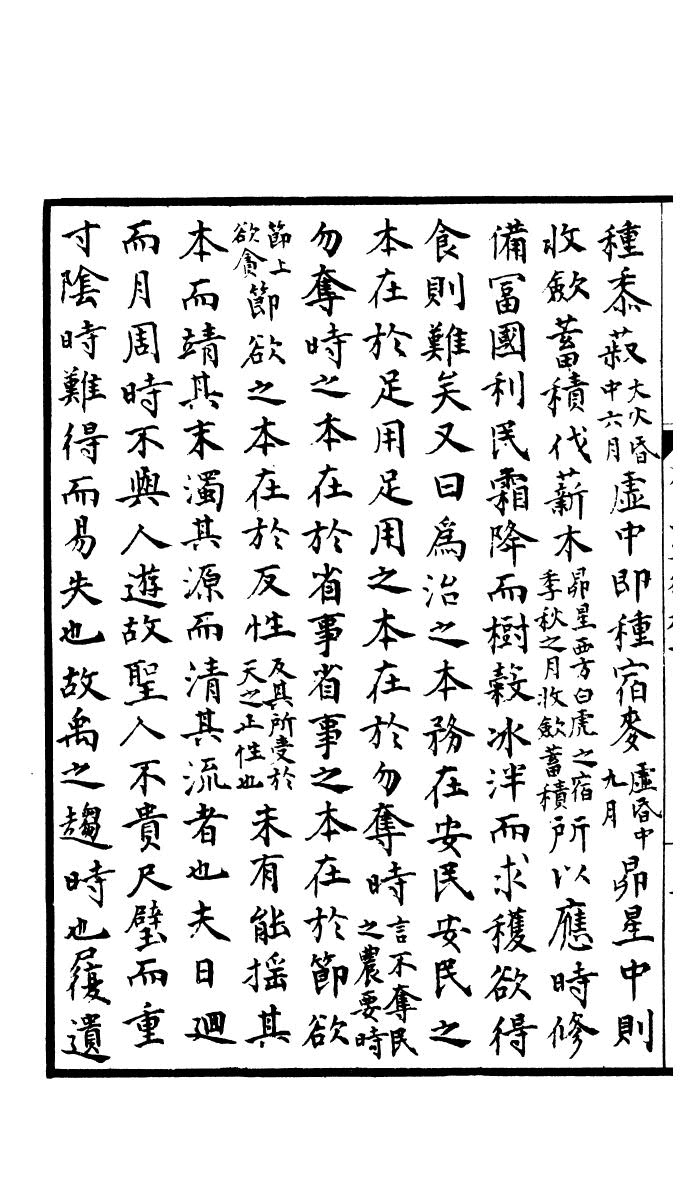 種黍菽大火昏中六月虛中即種宿麥虛昏中九月昴星中則
收斂蓄積伐薪木昴星西方白虎之宿季秋之月收斂蓄積所以應時修
備冨國利民霜降而樹穀冰泮而求穫欲得
食則難矣又曰爲治之本務在安民安民之
本在於足用足用之本在於勿奪時言不奪民之農要時
勿奪時之本在於省事省事之本在於節欲
節上欲貪節欲之本在於反性反其所受於天之正性也未有能搖其
本而靖其末濁其源而清其流者也夫日迴
而月周時不與人遊故聖人不貴尺璧而重
寸陰時難得而易失也故禹之趨時也履遺